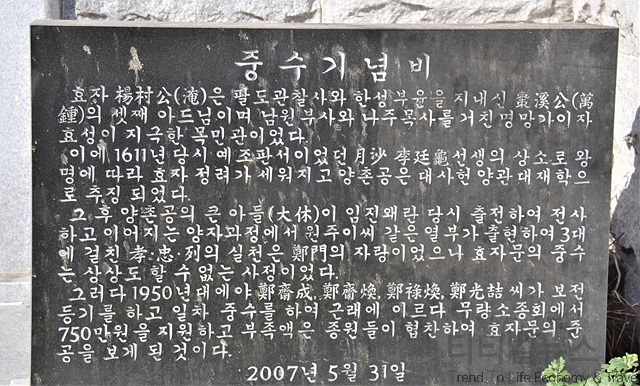 중수기념비
효자 楊村公(淹)은 팔도관찰사와 한성부윤을 지내신 叢溪公(萬
鍾)의 셋째 아드님이며 남원부사와 나주목사를 거친 명망가이자
효성이 지극한 목민관이었다.
이에 1611년 당시 예조판서이었던 月沙 李廷龜선생의 상소로 왕
명에 따라 효자 정려가 세워지고 양촌공은 대사헌양관대재학으
로 추징 되었다.
그 후 양촌공의 큰 아들(大休)이 임진왜란 당시 출전하여 전사
하고 이어지는 양자과정에서 원주이씨 같은 열부가 출현하여 3대
에 걸친 孝·忠·列의 실천은 鄭門의 자랑이었으나 효자문의 중수
는 상상도 할 수 없는 사정이었다.
그러다 1950년대에야 鄭齋成, 鄭齋煥, 鄭祿煥, 鄭光喆 씨가 보전
등기를 하고 일차 중수를 하여 근래에 이르다 무량소종회에서
750만원을 지원하고 부족액은 종원들이 협찬하여 효자문의 중
공을 보게 된 것이다.
2007년 5월 31일
Life Economy & Trave